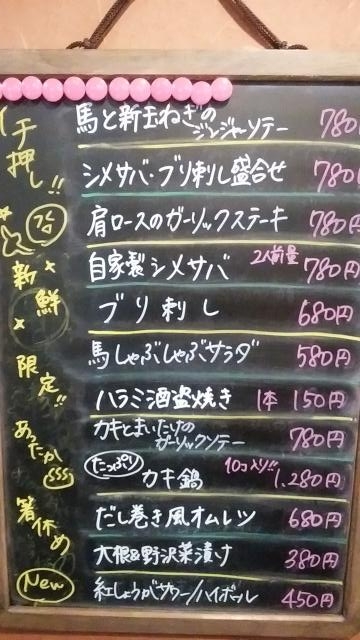 イチ押し!!
馬と新玉ねぎの
ジンジャーソテー 780
シメサバ・ブリ刺し盛合せ 780
肩ロースのガーリックステーキ 780円
新鮮
自家製シメサバ 2人前量 780円
ブリ刺し 680円
限定!!
馬しゃぶしゃぶサラダ 580円
ハラミ酒盗焼き 1本 150円
あったか
カキとまいたけの
ガーリックソテー 780円
たっぷり カキ鍋 10コ入り!! 1,280円
箸休め
だし巻き風オムレツ 680円
大根&野沢菜漬け 380円
New 紅しょうがサワー/ハイボール 450円